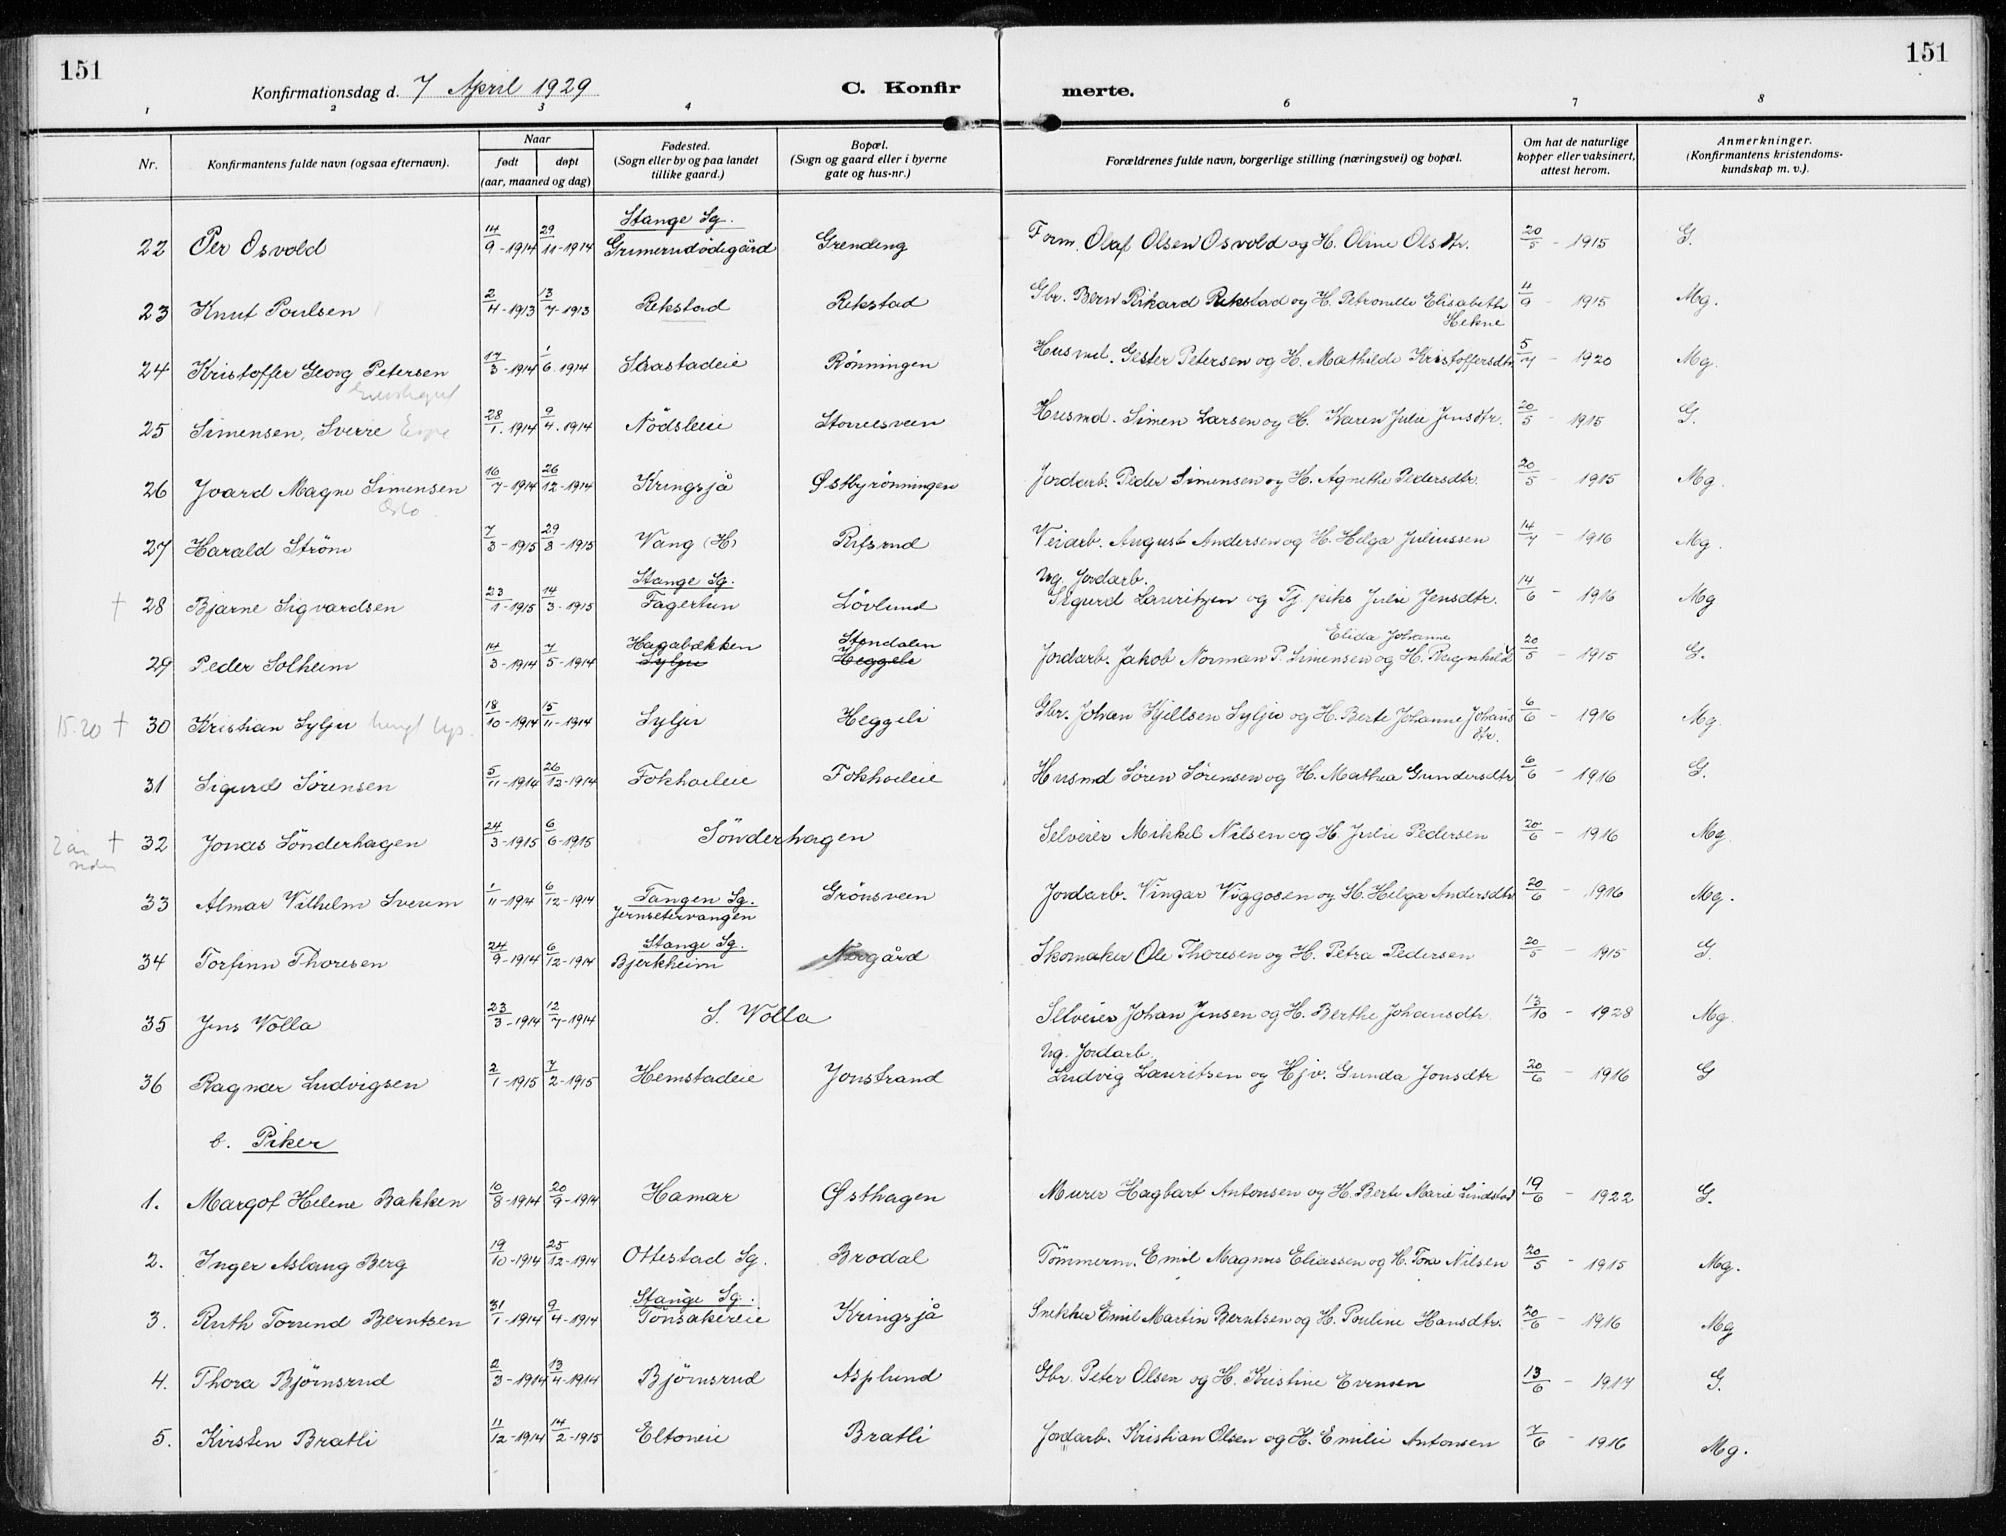 151
151
Konfirmationsdag d. 7 April 1929
C. Konfirmerte.
1 2 3 4 6 7 8
Nr. Konfirmantens fulde navn (ogsaa efternavn). Naar født døpt (aar, maaned og dag) Fødested. (Sogn eller by og paa landet tillike gaard.) Bopæl. (Sogn og gaard eller i byerne gate og hus-nr.) Forældrenes fulde navn, borgerlige stilling (næringsvei) og bopæl. Om hat de naturlige kopper eller vaksinert, attest herom. Anmerkninger. (Konfirmantens kristendomskundskap m. v.).
Stange Sg.
22 Per Osvold 14/9-1914 29/11-1914 Grimerudødegård Grendeng Form. Olaf Olsen Osvold og H. Oline Olsdtr. 20/5 - 1915 G.
23 Knut Poulsen 2/4-1913 13/7-1913 Rekstad Rekstad Gbr. Bern Rikard Rekstad og H. Petronelle Elisabeth Hekne 4/9 - 1915 Mg.
24 Kristoffer Georg Petersen 17/3-1914 1/6-1914 Skastadeie Rönningen Husmd. Gester Petersen og H. Mathilde Kristoffersdtr 5/7 - 1920 Mg.
25 Simensen, Sverre 28/1-1914 9/4-1914 Nödsleie Storresveen Husmd. Simen Larsen og H. Karen Julie Jensdtr. 20/5 - 1915 G.
26 Ivard Magne Simensen 16/7-1914 26/12-1914 Kringsjå Østbyrönningen Jordarb. Peder Simensen og H. Agnethe Pedersdtr. 20/5 - 1915 Mg.
Oslo
27 Harald Ström 7/3-1915 29/8-1915 Vang (H) Rifsrud Veiarb. August Andersen og H. Helga Juliussen 14/7 - 1916 Mg.
Stange Sg. Ug. Jordarb.
† 28 Bjarne Sigvardsen 23/1-1915 14/3-1915 Fagertun Lövlund Sigurd Lauritzen og Tj. pike Julie Jensdtr. 14/6 - 1916 Mg
Hagabækken Stendalen Elida Johanne
29 Peder Solheim 14/3-1914 7/5-1914 Sylju Heggeli Jordarb. Jakob Norman P. Simensen og H. Ragnhild 20/5 - 1915 G.
15.20 † 30 Kristian Sylju 18/10-1914 15/11-1914 Sylju Heggeli Gbr. Johan Kjellsen Sylju og H. Berte Johanne Johansdtr. 6/6 - 1916 Mg.
31 Sigurd Sörensen 5/11-1914 26/12-1914 Fokholeie Fokholeie Husmd Sören Sörensen og H. Mathea Gundersdtr 6/6 - 1916 G.
2 år siden † 32 Jonas Sönderhagen 24/3-1915 6/6-1915 Sönderhagen Selveier Mikkel Nilsen og H. Julie Pedersen 20/6 - 1916 Mg.
33 Almar Vilhelm Sveum 1/11-1914 6/12-1914 Tangen Sg. Jernsetervangen Grönsveen Jordarb. Vingar Viggosen og H. Helga Andersdtr 20/6 - 1916 Mg.
34 Torfinn Thoresen 24/9-1914 6/12-1914 Stange Sg. Bjerkheim Norgård Skomaker Ole Thoresen og H. Petra Pedersen 20/5 - 1915 G.
35 Jens Volla 23/3-1914 12/7-1914 S. Volla Selveier Johan Jensen og H. Berthe Johansdtr. 13/10 - 1928 Mg.
Ug. Jordarb.
36 Ragnar Ludvigsen 2/1-1915 7/2-1915 Hemstadeie Jonstrand Ludvig Lauritsen og Hjv. Gunda Jonsdtr 20/6 - 1916 G
b. Piker
1. Margot Helene Bakken 10/8-1914 20/9-1914 Hamar Østhagen Murer Hagbart Antonsen og H. Berte Marie Lindstad 19/6 - 1922 G.
2. Inger Aslaug Berg 19/10-1914 25/12-1914 Ottestad Sg. Brodal Tömmerm. Emil Magnus Eliassen og H. Tora Nilsen 20/5 - 1915 Mg.
Stange Sg.
3. Ruth Torund Berntsen 31/1-1914 9/4-1914 Tönsakereie Kringsjå Snekker Emil Martin Berntsen og H. Pouline Hansdtr. 20/6 - 1916 Mg
4. Thora Björnsrud 2/3-1914 13/4-1914 Björnsrud Asplund Gbr. Peter Olsen og H. Kristine Evensen 13/6 - 1917 G.
5. Kirsten Bratli 11/12-1914 14/2-1915 Eltoneie Bratli Jordarb. Kristian Olsen og H. Emilie Antonsen 7/6 - 1916 Mg.